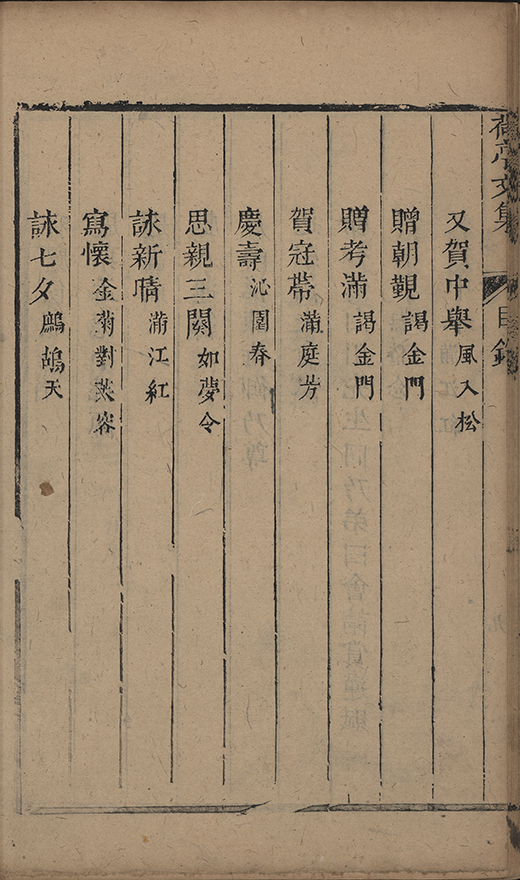 文集
目錄
又賀中舉風入松
贈朝覲謁金門
贈考滿謁金門
賀冠帶滿庭芳
慶壽沁園春
思親三闋如夢令
詠新晴滿江紅
寫懷金菊對芙容
詠七夕鷓鴣天